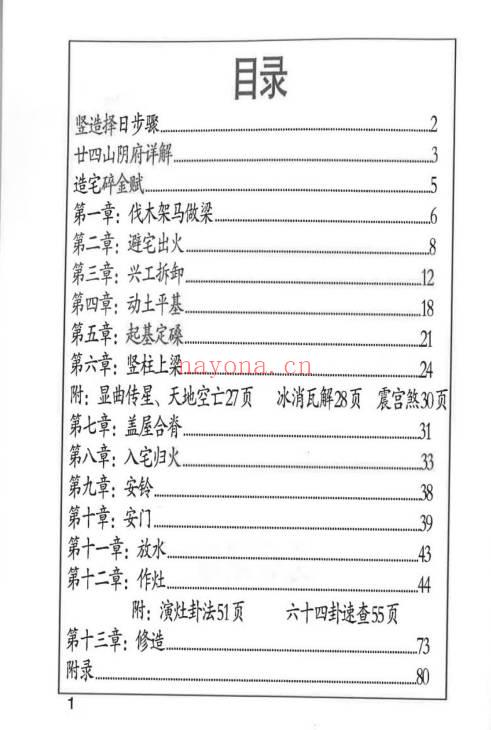 目录
竖造择日步骤 2
廿四山阴府详解 3
造宅碎金赋 5
第一章：伐木架马做梁 6
第二章：避宅出火 8
第三章：兴工拆卸 12
第四章：动土平基 18
第五章：起基定磉 21
第六章：竖柱上梁 24
nayona.cn
附：显曲传星、天地空亡27页 冰消瓦解28页 震宫煞30页
第七章：盖屋合脊 31
第八章：入宅归火 33
第九章：安铃 38
第十章：安门 39
第十一章：放水 43
第十二章：作灶 44
附：演灶卦法51页 六十四卦速查55页
第十三章：修造 73
附录 80
1